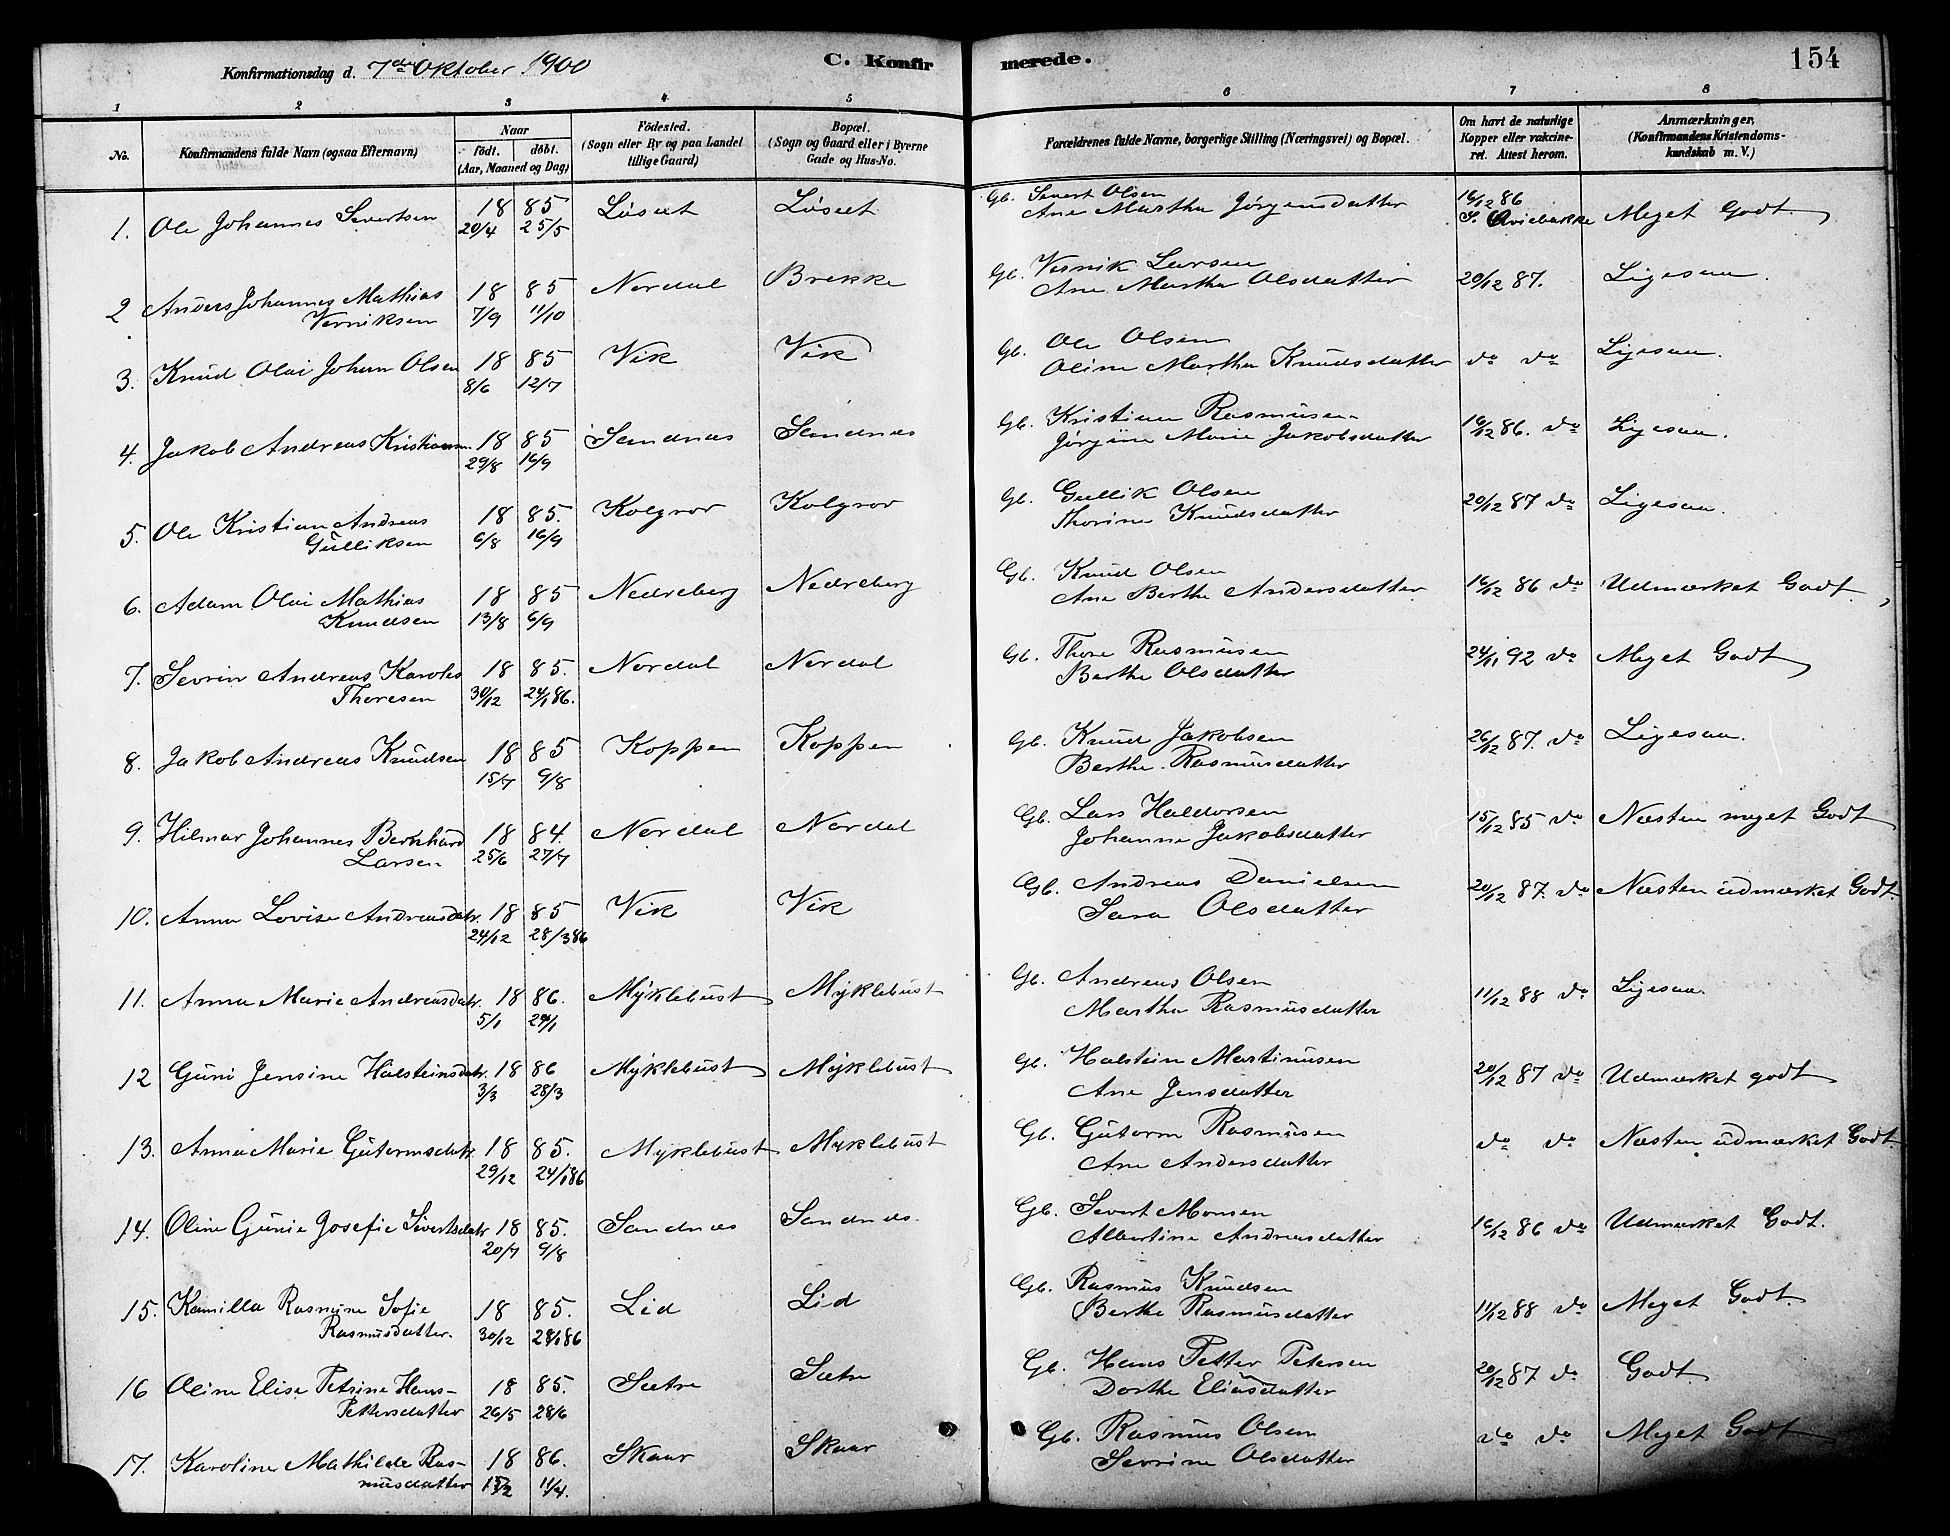 Konfirmationsdag d. 7de Oktober 1900
C. Konfirmerede.
154
1 2 3 4 5 6 7 8
No.
Konfirmandens fulde Navn (ogsaa Efternavn)
Naar
født. døbt.
(Aar, Maaned og Dag)
Fødested.
(Sogn eller By og paa Landet
tillige Gaard)
Bopæl.
(Sogn og Gaard eller i Byerne
Gade og Hus-No.
Forældrenes fulde Navne, borgerlige Stilling (Næringsvei) og Bopæl.
Om havt de naturlige
Kopper eller vakcine-
ret. Attest herom.
Anmærkninger,
(Konfirmandens Kristendoms-
kundskab m. V.)
1. Ole Johannes Severtsen 18 85 Løseet Løseet Gb. Severt Olsen 16/12 86
20/4 25/5 Ane Martha Jørgensdatter S. Qviebakke Meget Godt.
2 Anders Johannes Mathias 18 85 Nordal Brekke Gb. Vernik Larsen 20/12 87. Ligesaa.
Verniksen 7/9 11/10 Ane Martha Olsdatter
3. Knud Olai Johan Olsen 18 85 Vik Vik Gb. Ole Olsen do do Ligesaa.
8/6 12/7 Oline Martha Knudsdatter
4. Jakob Andreas Kristiansen 18 85 Sandnæs Sandnæs Gb. Kristian Rasmusen 16/12 86. do Ligesaa.
29/8 16/9 Jørgine Marie Jakobsdatter
5. Ole Kristian Andreas 18 85. Kolgrov Kolgrov Gb. Gullik Olsen 20/12 87 do Ligesaa.
Gulliksen 6/8 16/9 Thorine Knudsdatter
6. Adam Olai Mathias 18 85 Nedreberg Nedreberg Gb. Knud Olsen 16/12 86 do Udmærket Godt.
Knudsen 13/8 6/9 Ane Berthe Andersdatter
7. Sevrin Andreas Karoles 18 85. Nordal Nordal Gb. Thore Rasmusen 24/11 92 do Meget Godt
Thoresen 30/12 24/1 86. Berthe Olsdatter
8. Jakob Andreas Knudsen 18 85 Koppen Koppen Gb. Knud Jakobsen 26/12 87. do Ligesaa.
15/7 9/8 Berthe Rasmusdatter
9. Hilmar Johannes Bernhard 18 84 Nordal Nordal Gb. Lars Haldorsen 15/12 85 do Næsten meget Godt
Larsen 25/6 27/7 Johanne Jakobsdatter
10. Anna Lovise Andreasdatr. 18 85 Vik Vik Gb. Andreas Danielsen 20/12 87. do Næsten udmærket Godt.
24/12 28/3 86 Sara Olsdatter
11. Anna Marie Andreasdatr. 18 86. Myklebust Myklebust Gb. Andreas Olsen 11/12 88 do Ligesaa.
5/1 24/1 Martha Rasmusdatter
12 Guni Jensine Halsteinsdatr. 18 86 Myklebust Myklebust Gb. Halstein Martinusen 20/12 87 do Udmærket godt
3/3 28/3 Ane Jensdatter
13. Anna Marie Gutormsdatr. 18 85. Myklebust Myklebust Gb. Gutorm Rasmusen do do Næsten udmærket Godt.
29/12 24/1 86 Ane Andersdatter
14. Oline Gunie Josefie Sivertsdatr 18 85. Sandnæs Sandnæs. Gb. Severt Monsen 16/12 86 do Udmærket Godt.
20/7 9/8 Albertine Andreasdatter
15. Kamilla Rasmine Sofie 18 85. Lid Lid Gb. Rasmus Knudsen 11/12 88 do Meget Godt.
Rasmusdatter. 30/12 28/1 86 Berthe Rasmusdatter
16 Oline Elise Petrine Hans- 18 85. Sætre Sætre Gb. Hans Petter Petersen 20/12 87 do Godt.
Pettersdatter 26/5 28/6 Dorthe Eliasdatter
17. Karoline Mathilde Ras- 18 86. Skaar Skaar Gb. Rasmus Olsen do do Meget Godt
musdatter 11/4. Sevrine Olsdatter